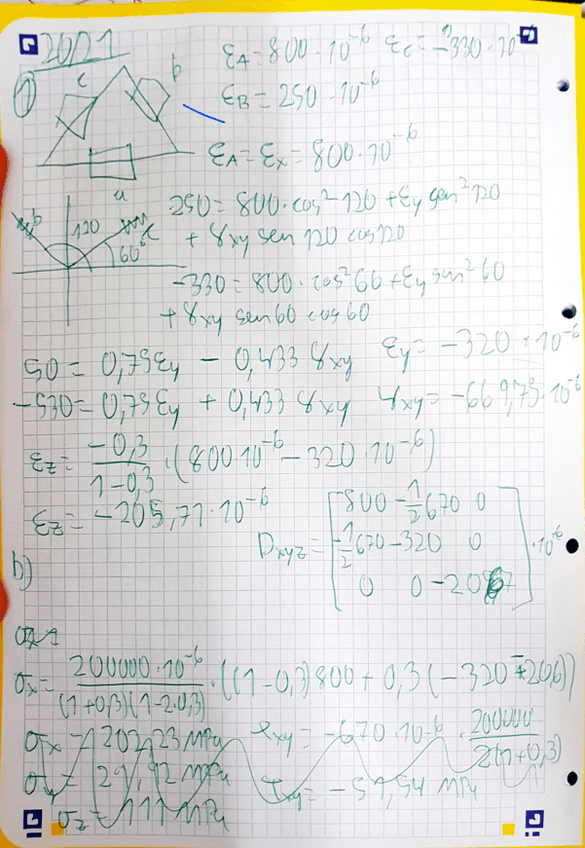 2021
εA = 800 · 10^-6 εC = -330 · 10^-6
1
c b
εB = 250 · 10^-6
εA = εx = 800 · 10^-6
a
250 = 800 · cos² 120 + εy sen² 120
b 120 c
+ γxy sen 120 cos 120
60°
-330 = 800 · cos² 60 + εy sen² 60
+ γxy sen 60 cos 60
50 = 0,75 εy - 0,433 γxy εy = -320 · 10^-6
-530 = 0,75 εy + 0,433 γxy γxy = -669,75 · 10^-6
εz = -0,3 / 1-0,3 · (800 · 10^-6 - 320 · 10^-6)
εz = -205,71 · 10^-6
800 -1/2 670 0
Dxyz = -1/2 670 -320 0 · 10^-6
0 0 -206
b)
σx = 200000 · 10^-6 / (1+0,3)(1-2·0,3) · ((1-0,3) 800 + 0,3 (-320 - 206))
σx = 202,23 MPa γxy = -670 · 10^-6 · 200000 / 2(1+0,3)
σy = 29,92 MPa τxy = -51,54 MPa
σz = MPa